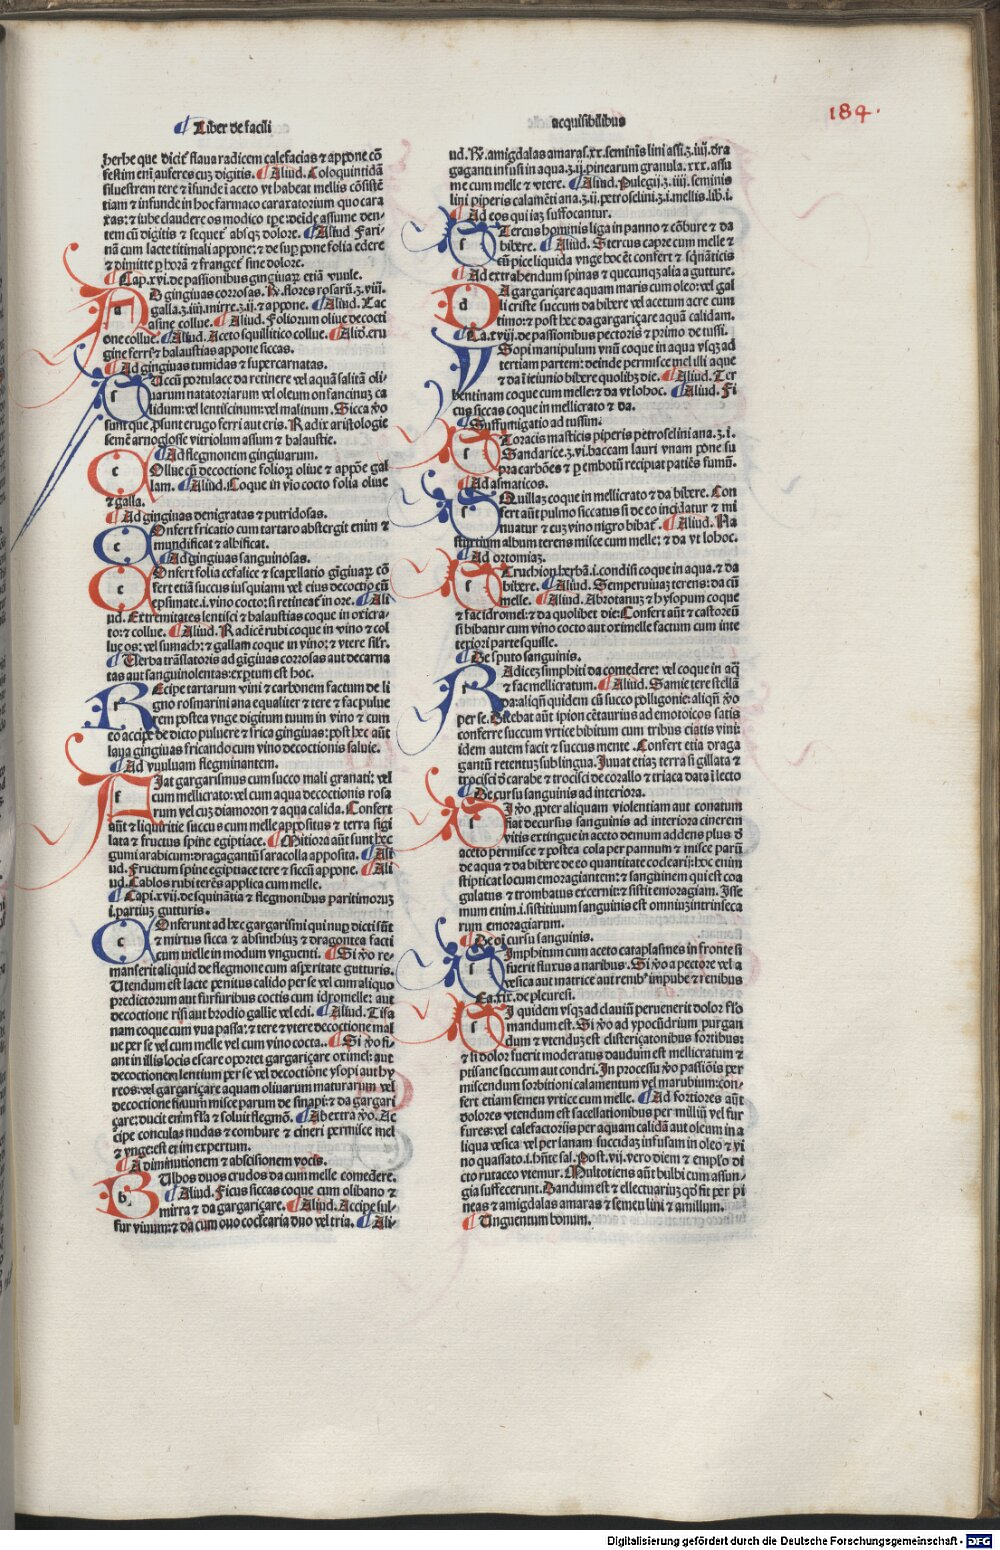 ¶ Liber de facili
acquisibilibus
184.
herbe que dicit᷑ flaua radicem calefacias ⁊ appone cō
festim em̄ auferes cuȝ digitis. ¶ Aliud. Coloquintidā
siluestrem tere ⁊ īfunde ī aceto vt habeat mellis cōsistē
tiam ⁊ infunde in hoc farmaco caraxatorium quo cara
xas: ⁊ iube claudere os modico tp̄e: deīde assume den-
tem cū digitis ⁊ sequet᷑ absqȝ dolore. ¶ Aliud Fari-
nā cum lacte titimali appone: ⁊ desup pone folia edere
⁊ dimitte ꝑ horā ⁊ franget᷑ sine dolore.
¶ Cap. xvi. de passionibus gingiuaꝝ etiā vuule.
AD gingiuas corrosas. Rx. flores rosarū. ʒ. viii.
galla. ʒ. iiii. mirre. ʒ. ii. ⁊ appone. ¶ Aliud. Lac
asine collue. ¶ Aliud. Foliorum oliue decocti
one collue. ¶ Aliud. Aceto squillitico collue. ¶ Aliō. eru
gine ferrī ⁊ balaustias appone siccas.
¶ Ad gingiuas tumidas ⁊ supercarnatas.
SUccū portulace da retinere vel aquā salitā oli-
uarum natatoriarum vel oleum onfancinuȝ ca
lidum: vel lentiscinum: vel malinum. Sicca ꝟo
sunt que ꝓsunt erugo ferri aut eris. Radix aristologie
semē arnoglosse vitriolum assum ⁊ balaustie.
¶ Ad flegmonem gingiuarum.
COllue cū decoctione folioꝝ oliue ⁊ appōe gal
lam. ¶ Aliud. Coque in vīo cocto folia oliue
⁊ galla.
¶ Ad gingiuas denigratas ⁊ putridosas.
COnfert fricatio cum tartaro abstergit enim ⁊
mundificat ⁊ albificat.
¶ Ad gingiuas sanguinosas.
COnfert folia cefalice ⁊ scapellatio gīgiuaꝝ cō
fert etiā succus iusquiami vel eius decoctio cū
epsimate. i. vino cocto: si retineat᷑ in ore. ¶ Ali
ud. Extremitates lentisci ⁊ balaustias coque in oxicra-
to: ⁊ collue. ¶ Aliud. Radicē rubi coque in vino ⁊ col
lue os: vel sumach: ⁊ gallam coque in vino: ⁊ vtere sil'r.
¶ Uerba trāslatoris ad gīgiuas corrosas aut decarna
tas aut sanguinolentas: exꝑtum est hoc.
REcipe tartarum vini ⁊ carbonem factum de li
gno rosmarini ana equaliter ⁊ tere ⁊ fac pulue
rem postea vnge digitum tuum in vino ⁊ cum
eo accipe de dicto puluere ⁊ frica gingiuas: post hec aūt
laua gingiuas fricando cum vino decoctionis saluie.
¶ Ad vuulam flegminantem.
FIat gargarismus cum succo mali granati: vel
cum mellicrato: vel cum aqua decoctionis rosa
rum vel cuȝ diamoron ⁊ aqua calida. Confert
aūt ⁊ liquiritie succus cum melle appositus ⁊ terra sigi
lata ⁊ fructus spine egiptiace. ¶ Mitiora aūt sunt hec
gumi arabicum: dragagantū saracolla apposita. ¶ Ali
ud. Fructum spine egiptiace tere ⁊ siccū appone. ¶ Ali
ud. Cablos rubi terēs applica cum melle.
¶ Capi. xvij. de squinātia ⁊ flegmonibus paritimoruȝ
i. partiuȝ gutturis.
COnferunt ad hec gargarismi qui nuꝑ dicti sūt
⁊ mirtus sicca ⁊ absinthiuȝ ⁊ dragontea facti
cum melle in modum vnguenti. ¶ Si ꝟo re-
manserit aliquid de flegmone cum asperitate gutturis.
Utendum est lacte penitus calido per se vel cum aliquo
predictorum aut furfuribus coctis cum idromelle: aut
decoctione risi aut brodio gallie vel edi. ¶ Aliud. Tisa
nam coque cum vua passa: ⁊ tere ⁊ vtere decoctione mal
ue per se vel cum melle vel cum vino cocta. ¶ Si ꝟo fi-
ant in illis locis escare oportet gargariçare oximel: aut
decoctionem lentium per se vel decoctiōe ysopi aut hy
reos: vel gargariçare aquam oliuarum maturarum vel
decoctione ficuum misce parum de sinapi: ⁊ da gargari
çare: ducit enim fl'a ⁊ soluit flegmō. ¶ Ab extra ꝟo. Ac
cipe conculas nudas ⁊ combure ⁊ cineri permisce mel
⁊ vnge: est enim expertum.
¶ Ad diminutionem ⁊ abscisionem vocis.
BUlbos duos crudos da cum melle comedere.
¶ Aliud. Ficus siccas coque cum olibano ⁊
mirra ⁊ da gargariçare. ¶ Aliud. Accipe sul-
fur viuum: ⁊ da cum ouo coclearia duo vel tria. ¶ Ali-
ud. Rx. amigdalas amaras. xx. seminis lini assi. ʒ. iiij. dra
gaganti infusi in aqua. ʒ. ij. pinearum granula. xxx. assu
me cum melle ⁊ vtere. ¶ Aliud. Pulegij. ʒ. iiij. seminis
lini piperis calamēti ana. ʒ. ij. petroselini. ʒ. i. mellis. lib. i.
¶ Ad eos qui iaȝ suffocantur.
STercus hominis liga in panno ⁊ cōbure ⁊ da
bibere. ¶ Aliud. Stercus capre cum melle ⁊
cū pice liquida vnge hoc em̄ confert ⁊ sqnāticis
¶ Ad extrahendum spinas ⁊ quecunqȝ alia a gutture.
DA gargariçare aquam maris cum oleo: vel gal
li criste succum da bibere vel acetum acre cum
timo: ⁊ post hec da gargariçare aquā calidam.
¶ Ca. xviij. de passionibus pectoris ⁊ primo de tussi.
YSopi manipulum vnū coque in aqua vsqȝ ad
tertiam partem: deinde permisce mel illi aque
⁊ da ī ieiunio bibere quolibȝ die. ¶ Aliud. Ter
bentinam coque cum melle: ⁊ da vt lohoc. ¶ Aliud. Fi
cus siccas coque in mellicrato ⁊ da.
¶ Suffumigatio ad tussim.
SToracis masticis piperis petroselini ana. ʒ. i.
Sandarice. ʒ. vi. baccam lauri vnam pone su
pra carbōes ⁊ ꝑ embotū recipiat patiēs fumū.
¶ Ad asmaticos.
SQuillaȝ coque in mellicrato ⁊ da bibere. Con
fert aūt pulmo siccatus si de eo incidatur ⁊ mi
nuatur ⁊ cuȝ vino nigro bibat᷑. ¶ Aliud. Na
sturtium album terens misce cum melle: ⁊ da vt lohoc.
¶ Ad ortomiaȝ.
STruchion herbā. i. condisi coque in aqua. ⁊ da
bibere. ¶ Aliud. Semperuiuaȝ terens: da cū
melle. ¶ Aliud. Abrotanuȝ ⁊ hysopum coque
⁊ fac idromel: ⁊ da quolibet die: Confert aūt ⁊ castoreū
si bibatur cum vino cocto aut oximelle factum cum inte
teriori parte squille.
¶ De sputo sanguinis.
RAdiceȝ simphiti da comedere: vel coque in aq̄
⁊ fac mellicratum. ¶ Aliud. Samie tere stellā
da: aliqn̄ quidem cū succo polligonie: aliqn̄ ꝟo
per se. Dicebat aūt ipion cētaurius ad emotoicos satis
conferre succum vrtice bibitum cum tribus ciatis vini:
idem autem facit ⁊ succus mente. Confert etiā draga
gantū retentuȝ sub lingua. Iuuat etiaȝ terra si gillata ⁊
trocisci d' carabe ⁊ trocisci de corallo ⁊ triaca data ī lecto
¶ De cursu sanguinis ad interiora.
SI ꝟo ꝓpter aliquam violentiam aut conatum
fiat decursus sanguinis ad interiora cinerem
vitis extingue in aceto demum addens plus d'
aceto permisce ⁊ postea cola per pannum ⁊ misce parū
de aqua ⁊ da bibere de eo quantitate coclearij: hec enim
stipticat locum emoragiantem: ⁊ sanguinem qui est coa
gulatus ⁊ trombatus excernit: ⁊ sistit emoragiam. Isse
mum enim. i. sistitiuum sanguinis est omniuȝ intrinseca
rum emoragiarum.
¶ De oī cursu sanguinis.
SImphitum cum aceto cataplasmes in fronte si
fuerit fluxus a naribus. Si ꝟo a pectore vel a
vesica aut matrice aut renib᷒ impube ⁊ renibus
¶ Ca. xix. de pleuresi.
SI quidem vsqȝ ad clauiū peruenerit dolor fl'o
mandum est. Si ꝟo ad ypocūdrium purgan
dum ⁊ vtenduȝ est clisteriçationibus fortibus:
⁊ si dolor fuerit moderatus dandum est mellicratum ⁊
ptisane succum aut condri. In processu ꝟo passiōis per
miscendum sorbitioni calamentum vel marubium: con-
fert etiam semen vrtice cum melle. ¶ Ad fortiores aūt
dolores vtendum est sacellationibus per milliū vel fur
fures: vel calefactorijs per aquam calidā aut oleum in a
liqua vesica vel per lanam succidaȝ infusam in oleo ⁊ vi
no quassato. i. hn̄te sal. Post. vij. vero diem ⁊ emplō di
cto rutacco vtemur. Multotiens aūt bulbi cum assun-
gia suffecerunt. Dandum est ⁊ ellectuariuȝ qđ fit per pi
neas ⁊ amigdalas amaras ⁊ semen lini ⁊ amillum.
¶ Unguentum bonum.
Digitalisierung gefördert durch die Deutsche Forschungsgemeinschaft - DFG